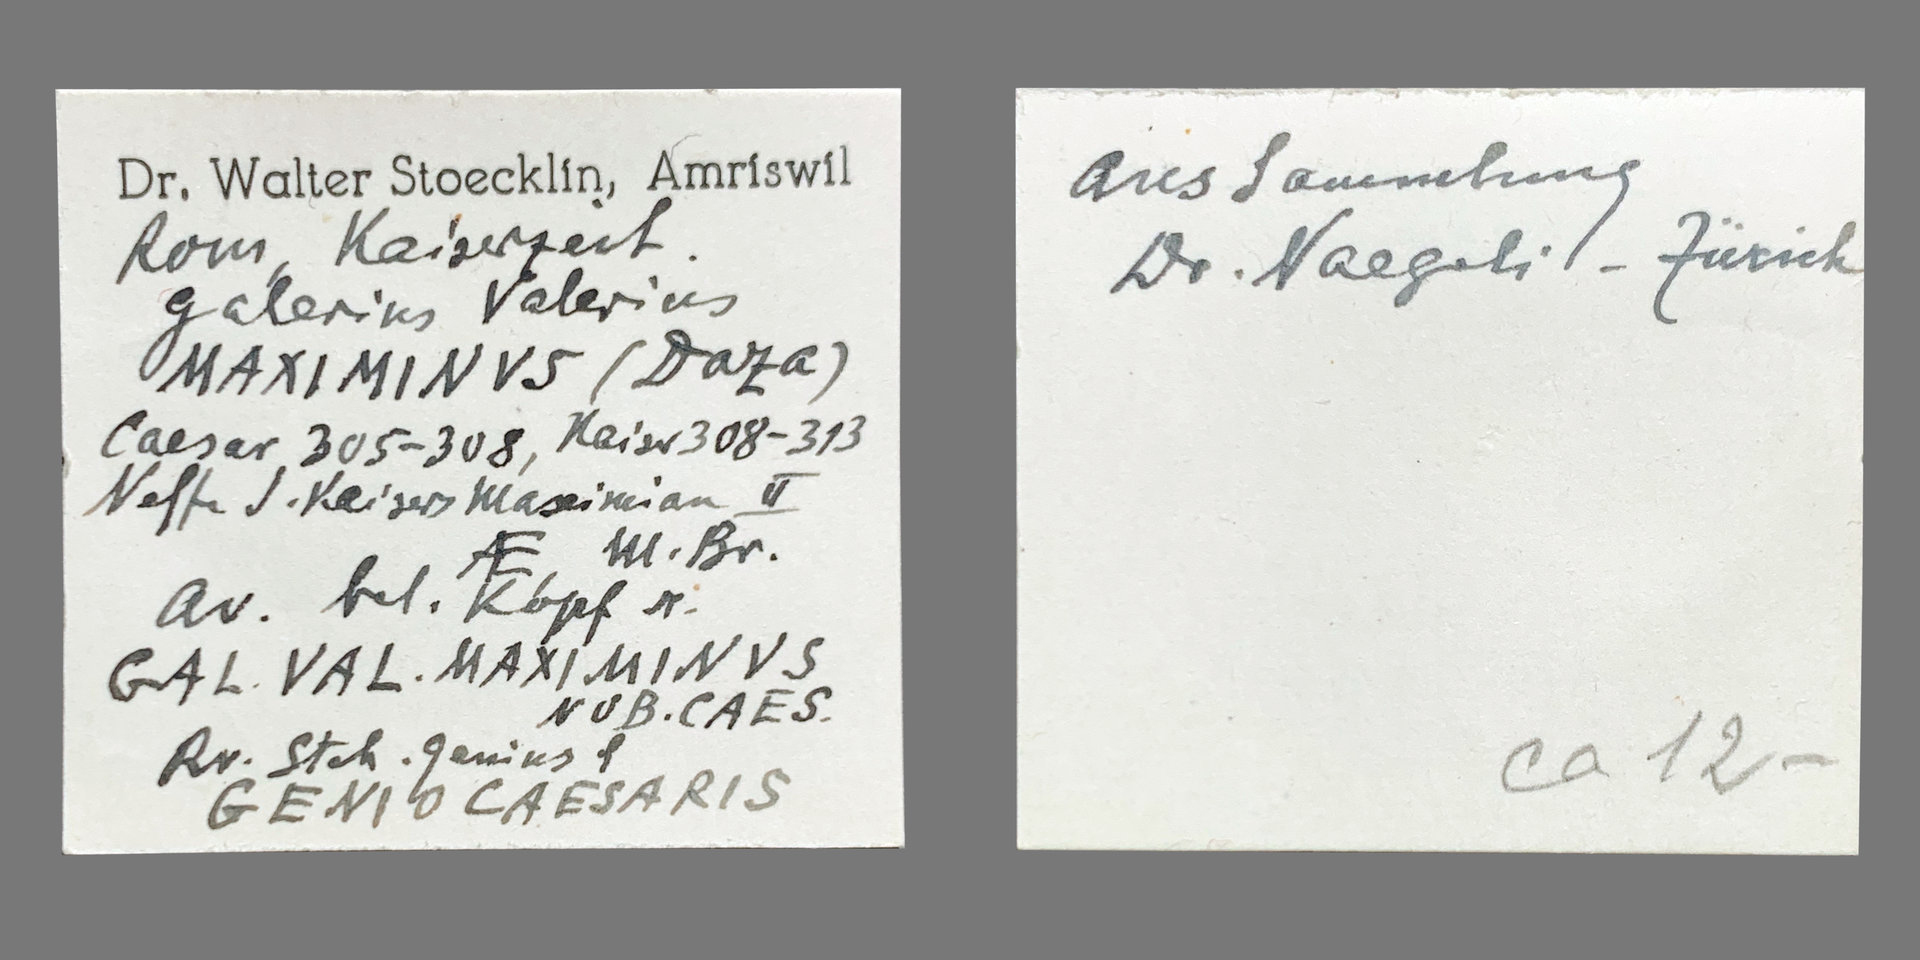 Dr. Walter Stoecklin, Amriswil
Rom, Kaiserzeit.
Galerius Valerius
MAXIMINVS (Daza)
Caesar 305-308, Kaiser 308-313
Neffe d. Kaisers Maximian II
Æ M.Br.
Av. bel. Kopf r.
GAL. VAL. MAXIMINVS
NOB. CAES.
Rv. Steh. Genius l
GENIO CAESARIS
aus Sammlung
Dr. Naegeli - Zürich
ca 12-